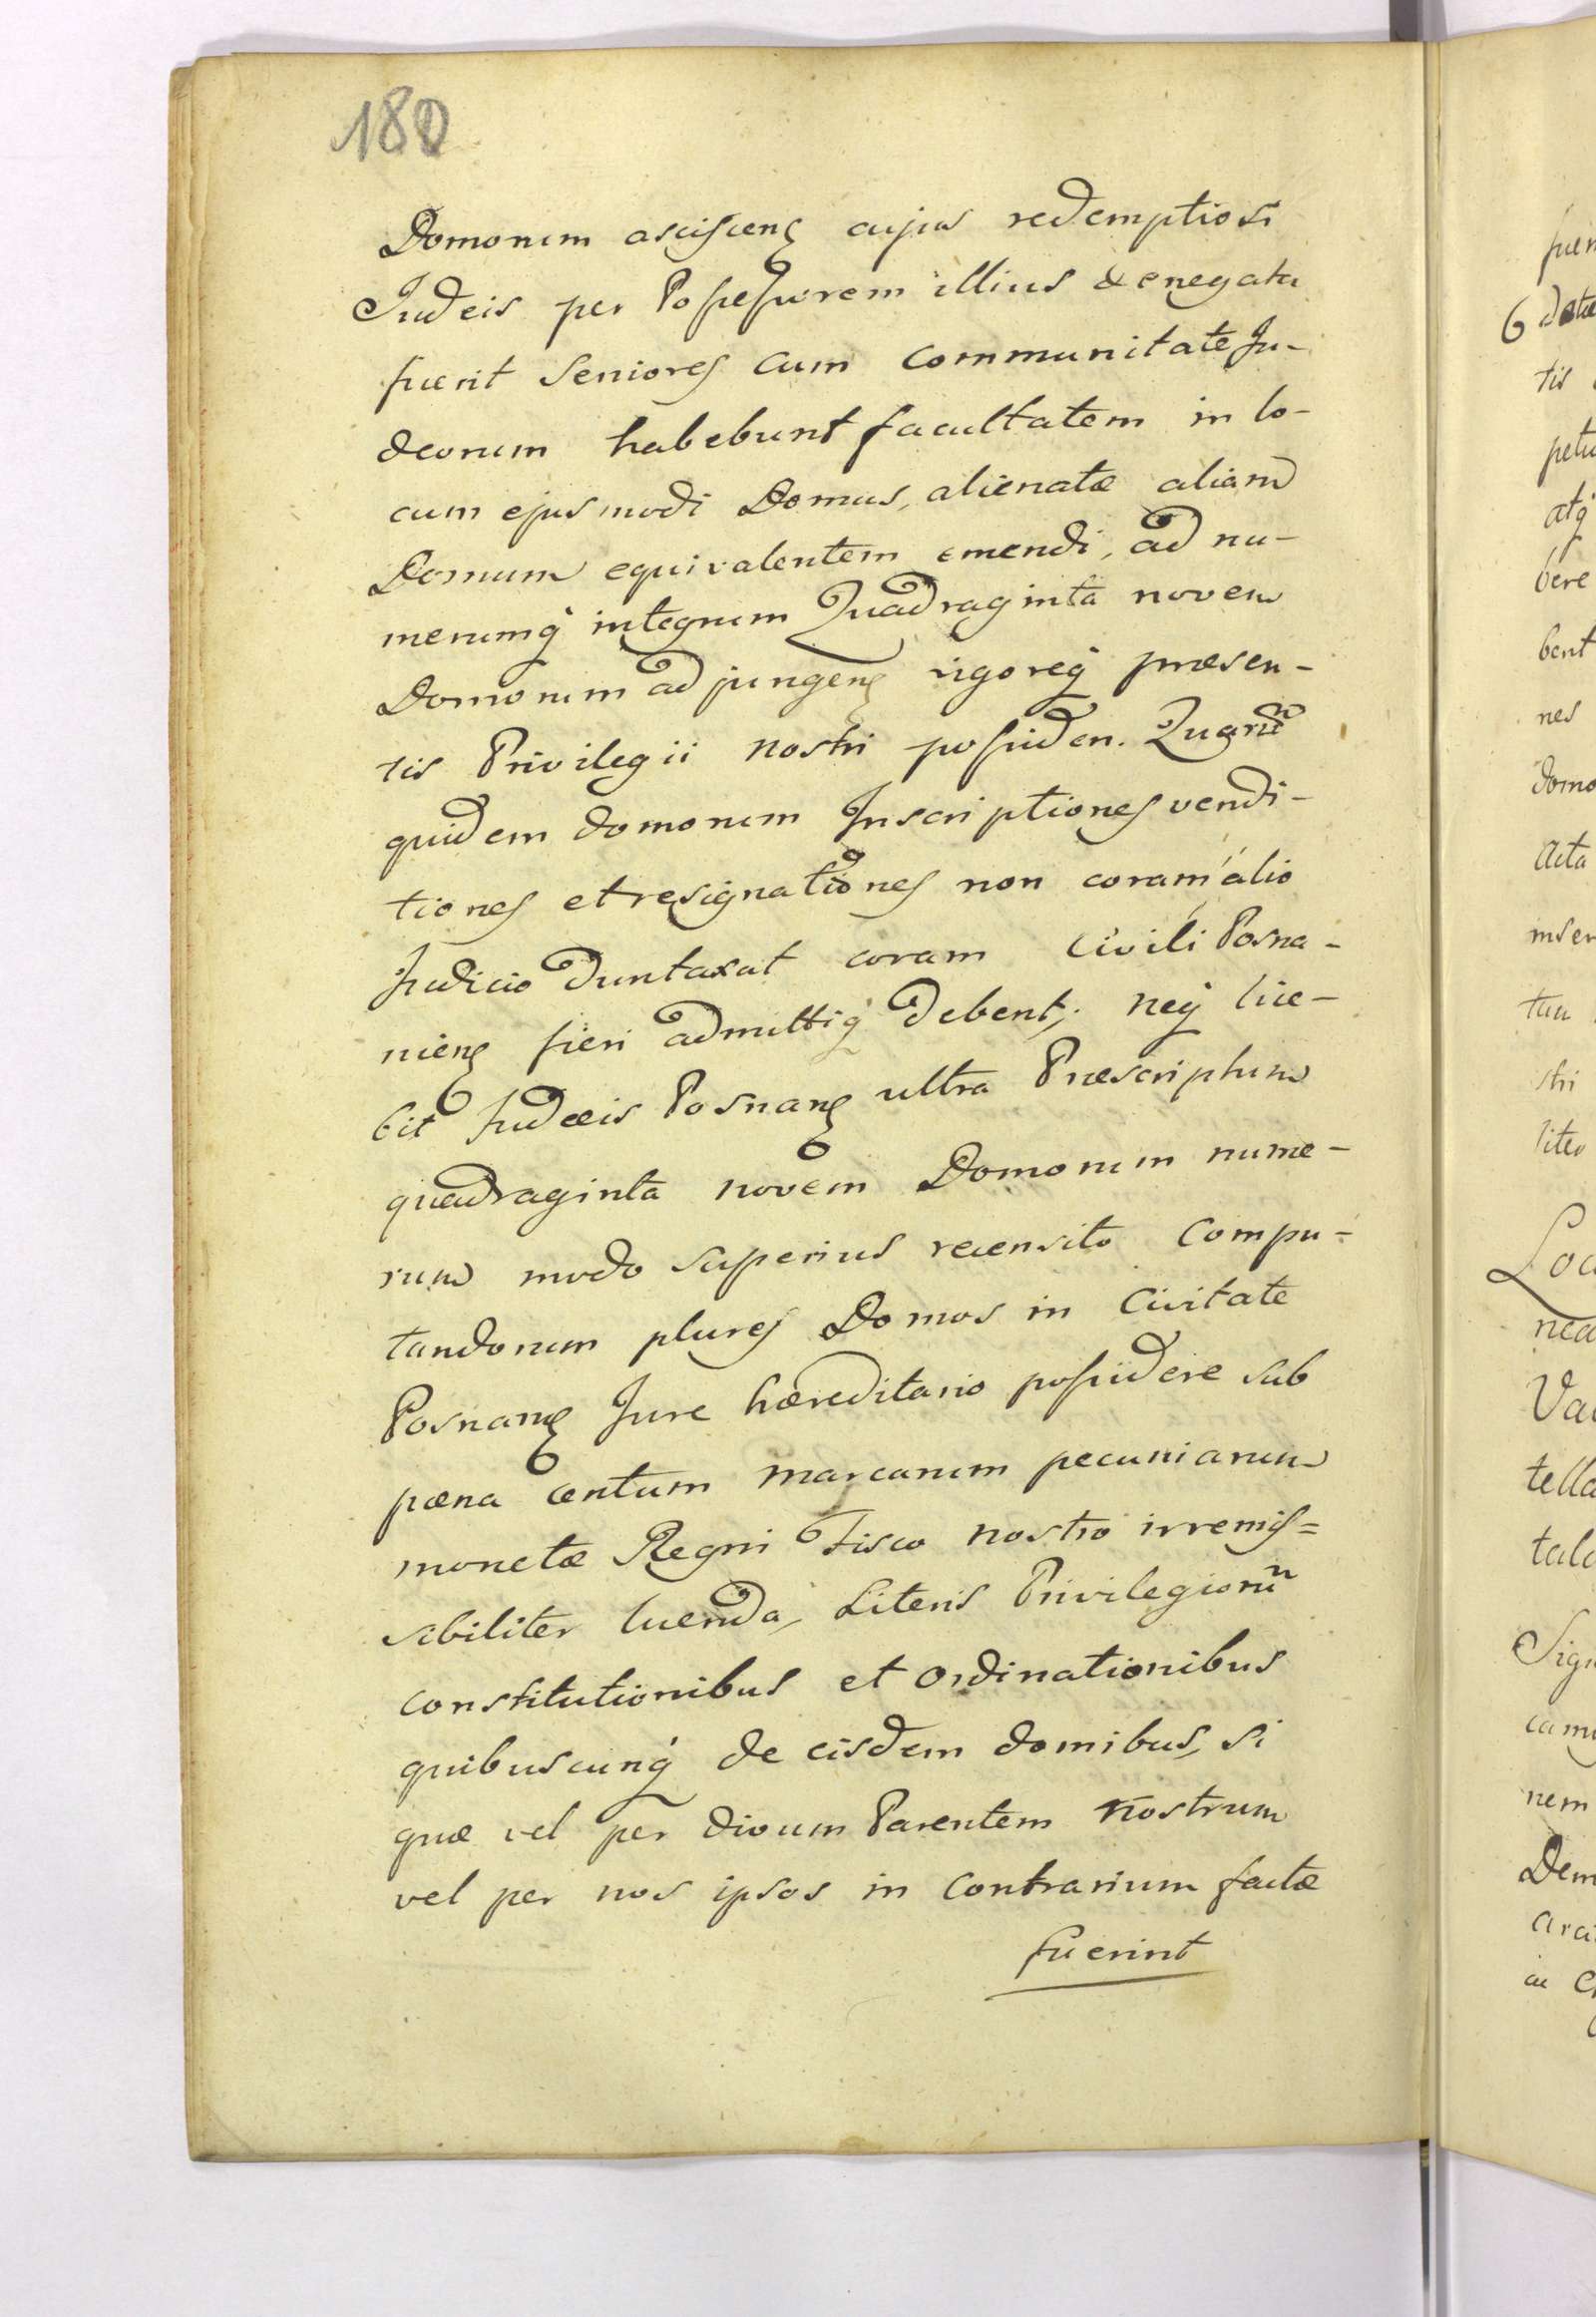 180
Domorum asciscens cujus redemptio si
Judeis per Possessorem illius denegata
fuerit Seniores cum communitate Ju-
deorum habebunt facultatem in lo-
cum ejusmodi Domus, alienatæ aliam
Domum equivalentem emendi, ad nu-
merumq́ integrum Quadraginta novem
Domorum adjungens vigoreq́ præsen-
tis Privilegii nostri possiden. Quarũ
quidem domorum Inscriptiones vendi-
tiones et resignationes non coram alio
Judicio duntaxat coram Civili Posna-
niens fieri admittiq́ debent; neq́ lice-
bit Judæis Posnans ultra Præscriptum
quadraginta novem Domorum nume-
rum modo superius recensito compu-
tandorum plures Domos in Civitate
Posnans Jure hæreditario possidere sub
pæna centum marcarum pecuniarum
monetæ Regni Fisco nostro irremis=
sibiliter luenda, Literis Privilegiorũ
constitutionibus et ordinationibus
quibuscunq́ de eisdem domibus, si
quæ vel per divum Parentem nostrum
vel per nos ipsos in contrarium factæ
fuerint
6 datæ
tis
petu
atq́
bere
bent
nes
domo
Acta
inser
stri
liter
Loc
nea
Va
tella
tala
Sig
nem
Dem